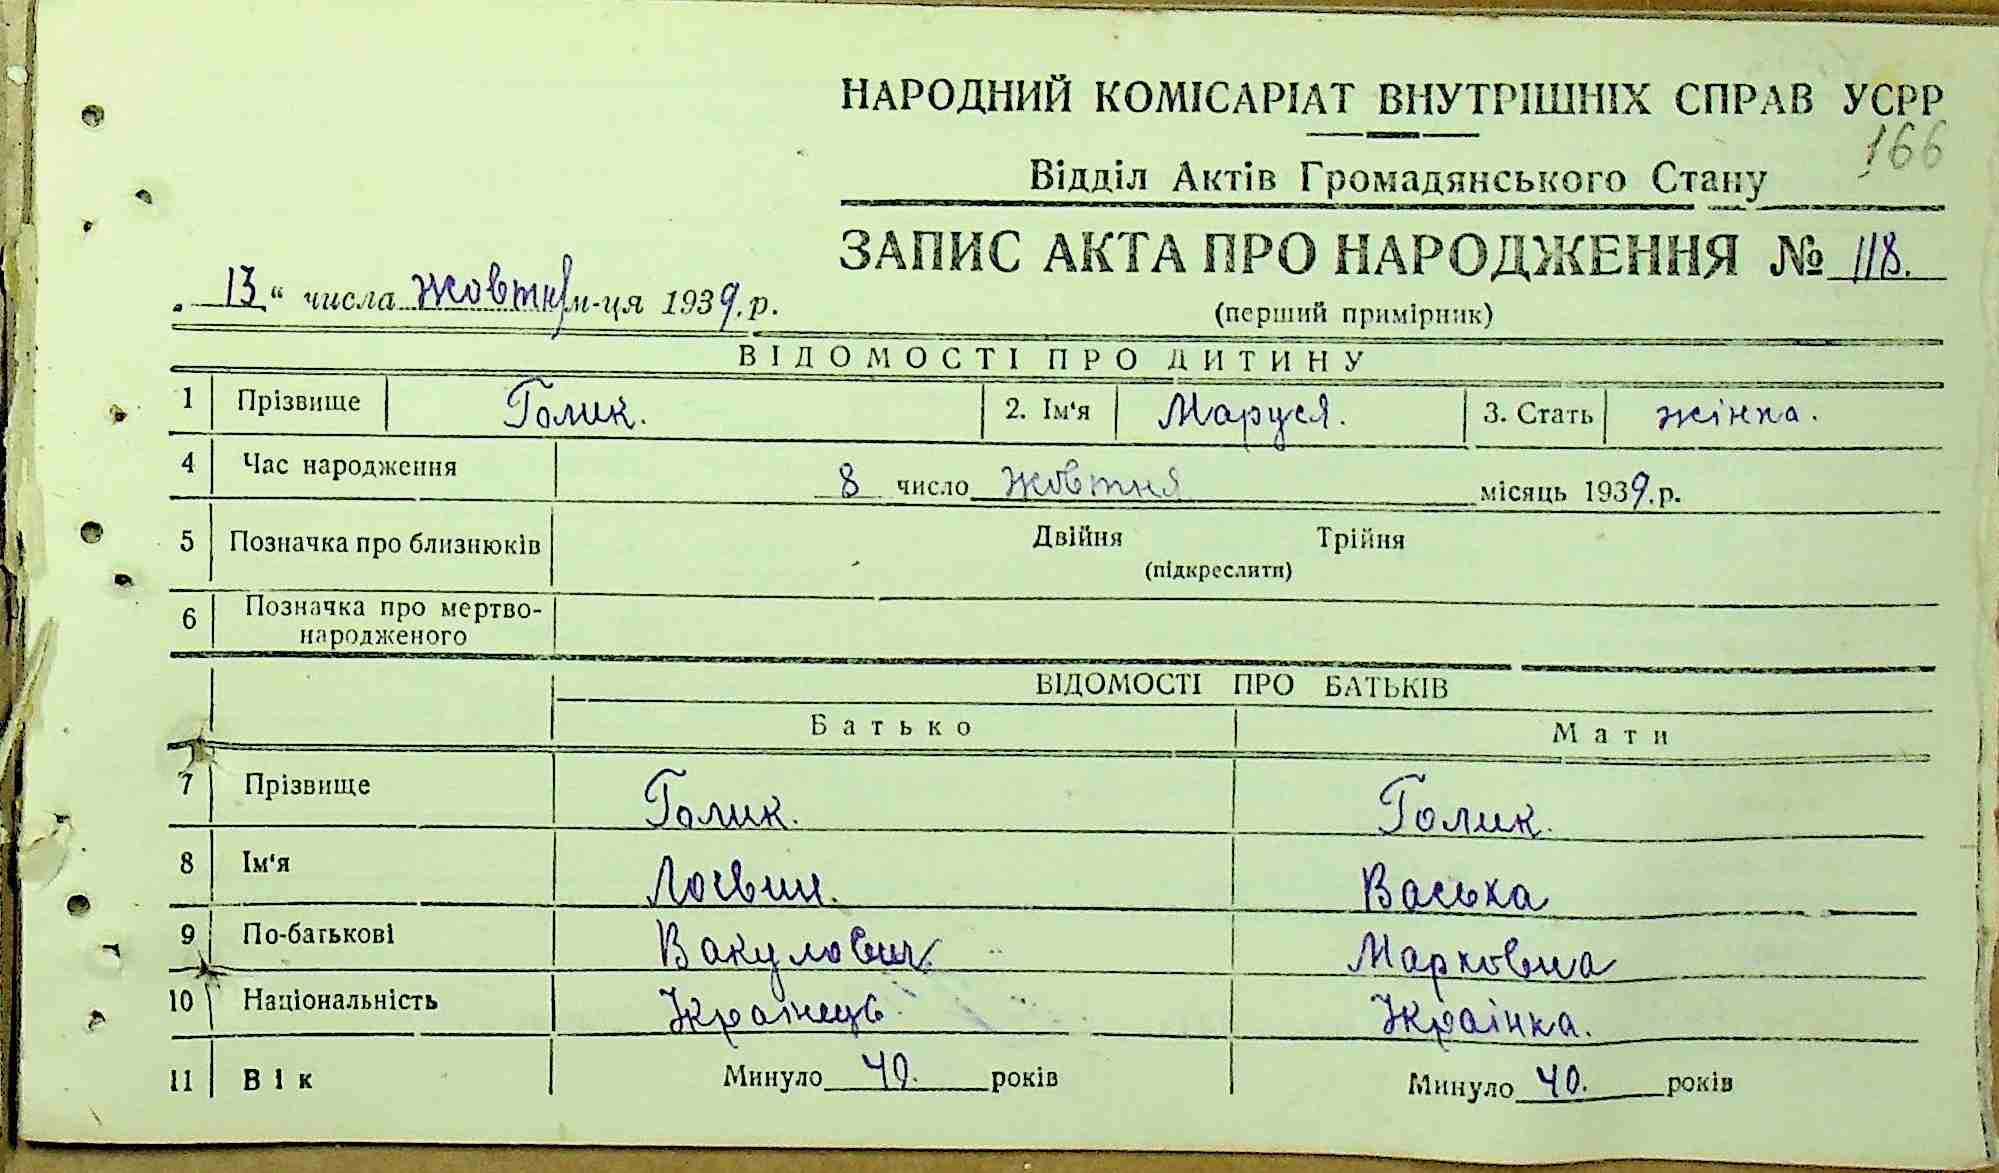 НАРОДНИЙ КОМІСАРІАТ ВНУТРІШНІХ СПРАВ УСРР
166
Відділ Актів Громадянського Стану
ЗАПИС АКТА ПРО НАРОДЖЕННЯ № 118.
„ 13 “ числа жовтня м-ця 1939.р.
(перший примірник)
ВІДОМОСТІ ПРО ДИТИНУ
1 Прізвище Голик. 2. Ім'я Маруся. 3. Стать жінка.
4 Час народження 8 число жовтня місяць 1939.р.
5 Позначка про близнюків Двійня Трійня
(підкреслити)
6 Позначка про мертво-
народженого
ВІДОМОСТІ ПРО БАТЬКІВ
Батько Мати
7 Прізвище Голик. Голик.
8 Ім'я Логвин. Васька
9 По-батькові Вакулович. Марковна
10 Національність Украінець. Украінка.
11 Вік Минуло 40. років Минуло 40. років